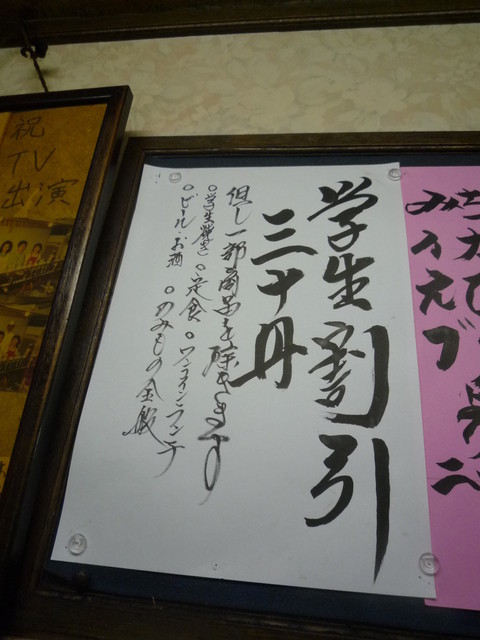 学生割引
三十円
但し一部商品を除きます
○学生焼き ○定食 ○ワンコインランチ
○ビール・お酒 ○のみもの全般
祝
TV
出演